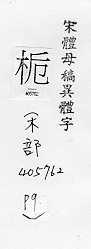 宋體母稿異體字
栀
405762
(木部
405762
P9)